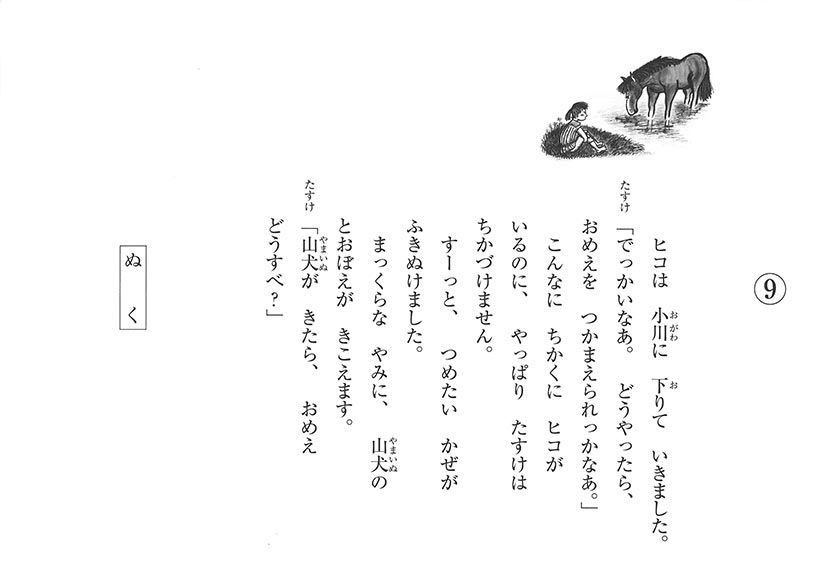 ⑨
ヒコは　小川に　下りて　いきました。
たすけ「でっかいなあ。　どうやったら、
おめえを　つかまえられっかなあ。」
こんなに　ちかくに　ヒコが
いるのに、　やっぱり　たすけは
ちかづけません。
すーっと、　つめたい　かぜが
ふきぬけました。
まっくらな　やみに、　山犬の
とおぼえが　きこえます。
たすけ「山犬が　きたら、　おめえ
どうすべ？」
ぬく